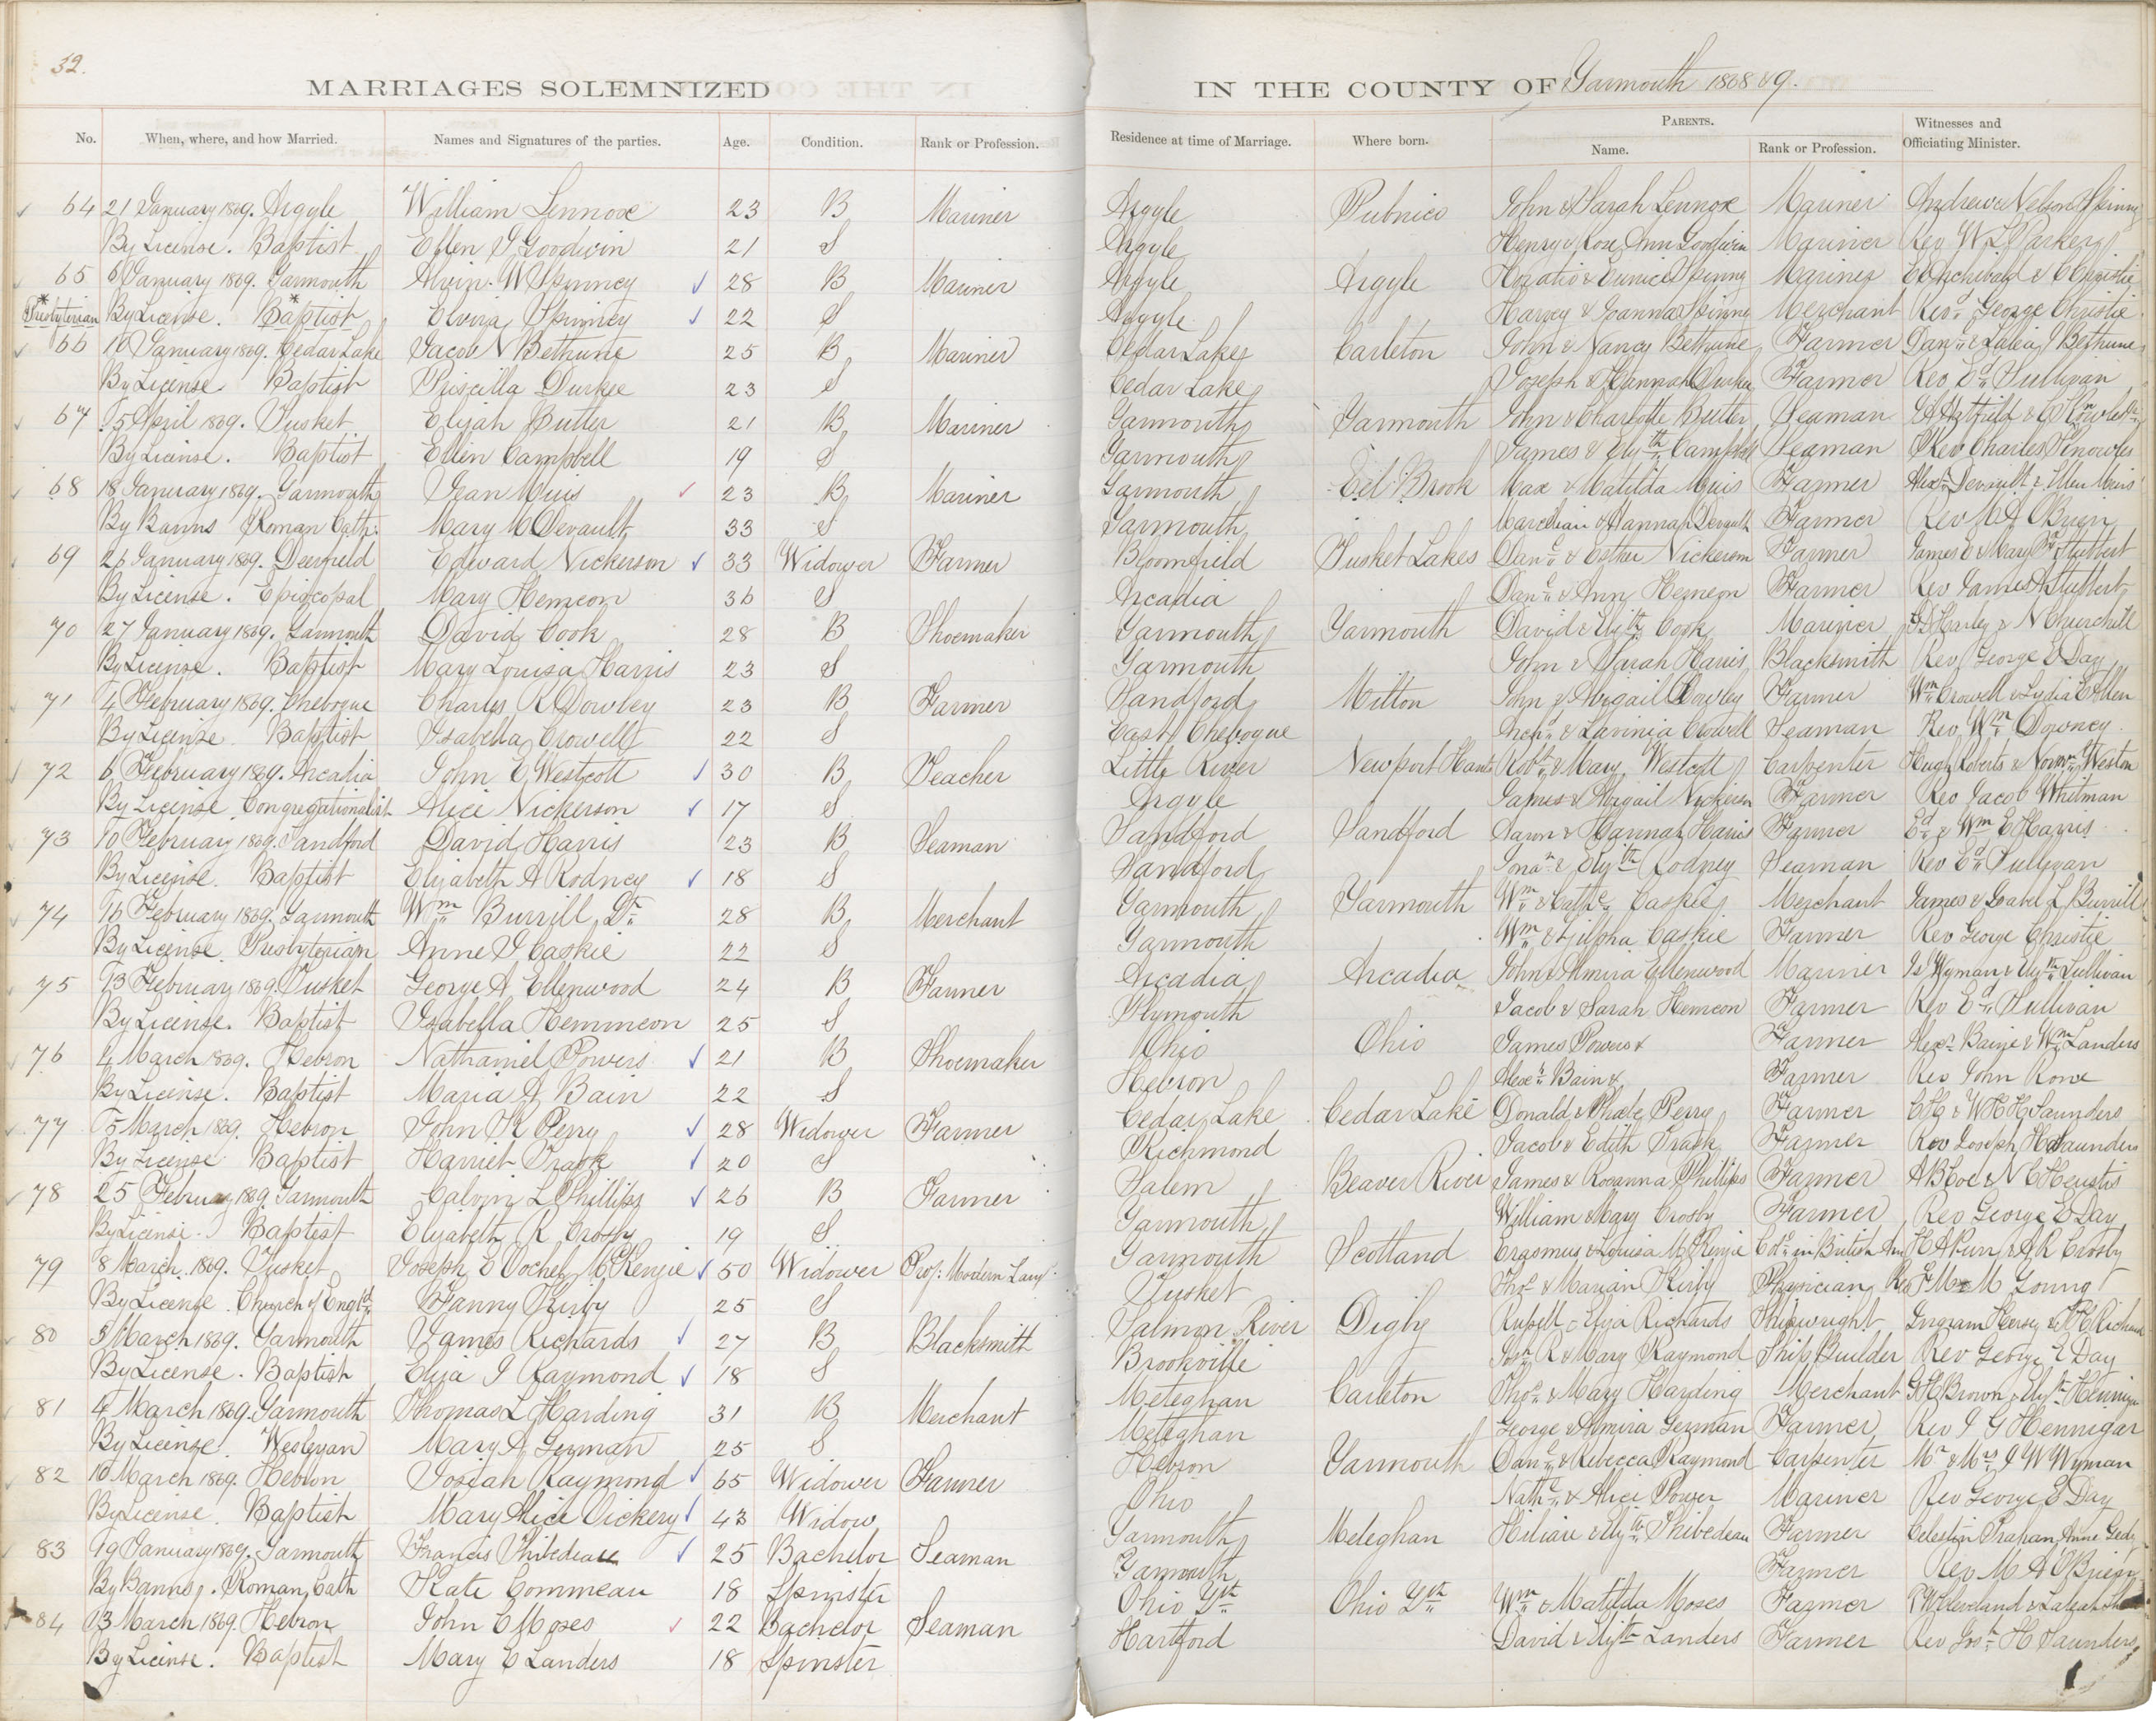 32.
MARRIAGES SOLEMNIZED IN THE COUNTY OF Yarmouth 1868 & 9.
No. When, where, and how Married. Names and Signatures of the parties. Age. Condition. Rank or Profession. Residence at time of Marriage. Where born. PARENTS. Name. Rank or Profession. Witnesses and Officiating Minister.
64 21 January 1869. Argyle William Lennox 23 B Mariner Argyle Pubnico John & Sarah Lennox Mariner Andrew & Nelson Spinney
By License. Baptist Ellen J Goodwin 21 S Argyle Henry & Rose Ann Goodwin Mariner Rev W L Parker
65 6 January 1869. Yarmouth Alvin W Spinney 28 B Mariner Argyle Argyle Horatio & Eunice Spinney Mariner E Archibald & C Christie
*Presbyterian By License. Baptist* Elvira Spinney 22 S Argyle Harvey & Joanna Spinney Merchant Revd. George Christie
66 16 January 1869. Cedar Lake Jacob N Bethune 25 B Mariner Cedar Lake Carleton John & Nancy Bethune Farmer Danl & Bethune
By License Baptist Priscilla Durkee 23 S Cedar Lake Joseph & Hannah Durkee Farmer Rev Ed Sullivan
67 15 April 1869. Tusket Elijah Butler 21 B Mariner Yarmouth Yarmouth John & Charlotte Butler Seaman Hatfield &
By License. Baptist Ellen Campbell 19 S Yarmouth James & Elizth Campbell Seaman Rev Charles Knowles
68 18 January 1869. Yarmouth Jean Muis 23 B Mariner Yarmouth Eel Brook Max & Matilda Muis Farmer Alexr Devault & Ellen Muis
By Banns Roman Cath. Mary M Devault 33 S Yarmouth & Hannah Devault Farmer Rev M A O'Brien
69 26 January 1869. Deerfield Edward Nickerson 33 Widower Farmer Bloomfield Tusket Lakes Danl & Esther Nickerson Farmer James & Mary Stuttert
By License. Episcopal Mary Hemeon 36 S Arcadia Danl & Ann Hemeon Farmer Rev James A Stuttert
70 27 January 1869. Yarmouth David Cook 28 B Shoemaker Yarmouth Yarmouth David & Elizth Cook Mariner G D Harley & N Churchill
By License. Baptist Mary Louisa Harris 23 S Yarmouth John & Sarah Harris Blacksmith Rev George E Day
71 4 February 1869. Chebogue Charles R Dowley 23 B Farmer Sandford Milton John & Abigail Dowley Farmer Wm Crowell & Lydia C Allen
By License. Baptist Isabella Crowell 22 S East Chebogue Archd & Lavinia Crowell Seaman Rev Wm Downey
72 6 February 1869. Arcadia John E Westcott 30 B Teacher Little River Newport Hants Robt & Mary Westcott Carpenter Hugh Roberts & Weston
By License Congregationalist Alice Nickerson 17 S Argyle James & Abigail Nickerson Farmer Rev Jacob Whitman
73 10 February 1869. Sandford David Harris 23 B Seaman Sandford Sandford Aaron & Hannah Harris Farmer Ed & Wm E Harris
By License. Baptist Elizabeth A Rodney 18 S Sandford Jona & Elizth Rodney Seaman Rev Ed Sullivan
74 16 February 1869. Yarmouth Wm Burrill Jr 28 B Merchant Yarmouth Yarmouth Wm & Cathe Caskie Merchant James & Isabel L Burrill
By License. Presbyterian Anne J Caskie 22 S Yarmouth Wm & Zilpha Caskie Farmer Rev George Christie
75 13 February 1869. Tusket George A Ellenwood 24 B Farmer Arcadia Arcadia John & Almira Ellenwood Mariner Wyman & Elizth Sullivan
By License. Baptist Isabella Hemmeon 25 S Plymouth Jacob & Sarah Hemeon Farmer Rev Ed Sullivan
76 4 March 1869. Hebron Nathaniel Powers 21 B Shoemaker Ohio Ohio James Powers & Farmer Alexr Baine & Wm Landers
By License. Baptist Maria A Bain 22 S Hebron Alexr Bain & Farmer Rev John Rowe
77 15 March 1869. Hebron John K Perry 28 Widower Farmer Cedar Lake Cedar Lake Donald & Phoebe Perry Farmer C G & W H H Saunders
By License Baptist Harriet Trask 20 S Richmond Jacob & Edith Trask Farmer Rev Joseph H Saunders
78 25 February 1869 Yarmouth Calvin L Phillips 26 B Farmer Salem Beaver River James & Rosanna Phillips Farmer & N C Heustis
By License. Baptist Elizabeth R Crosby 19 S Yarmouth William & Mary Crosby Farmer Rev George E Day
79 8 March 1869. Tusket Joseph E McKenzie 50 Widower Prof: Modern Lang. Yarmouth Scotland Erasmus & Louisa McKenzie Col in British Am & A R Crosby
By License. Church of Engld Fanny Kirby 25 S Tusket Thos & Marian Kirby Physician Rev M M Young
80 3 March 1869. Yarmouth James Richards 27 B Blacksmith Salmon River Digby Russell & Eliza Richards Shipwright Ingram Hersey & Richards
By License. Baptist Eliza J Raymond 18 S Brookville R & Mary Raymond Ship Builder Rev George E Day
81 4 March 1869. Yarmouth Thomas L Harding 31 B Merchant Meteghan Carleton Thos & Mary Harding Merchant G H Brown & Elizth Hennigar
By License. Wesleyan Mary A German 25 S Meteghan George & Almira German Farmer Rev J G Hennigar
82 10 March 1869. Hebron Josiah Raymond 65 Widower Farmer Hebron Yarmouth Danl & Rebecca Raymond Carpenter Mr & Mrs J W Wyman
By License. Baptist Mary Alice Vickery 43 Widow Ohio Nathl & Alice Power Mariner Rev George E Day
83 19 January 1869. Yarmouth Francis Thibedeau 25 Bachelor Seaman Yarmouth Meteghan Hiliare & Elyth Thibedeau Farmer Celestin Trahan Anne
By Banns. Roman Cath Kate Commeau 18 Spinster Yarmouth Farmer Rev M A O'Brien
84 13 March 1869. Hebron John C Moses 22 Bachelor Seaman Ohio Yth Ohio Yth Wm & Matilda Moses Farmer Cleveland &
By License. Baptist Mary E Landers 18 Spinster Hartford David & Elyth Landers Farmer Rev Jos H Saunders